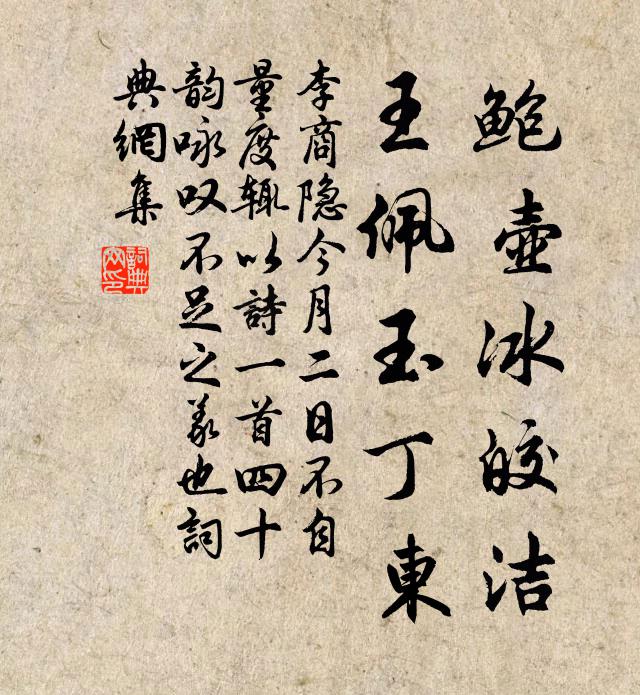 鲍壶冰皎洁
王佩玉丁東
李商隐今月二日不自
量度輒以詩一首四十
韵咏叹不足之義也詞
典網集
詞典
网印